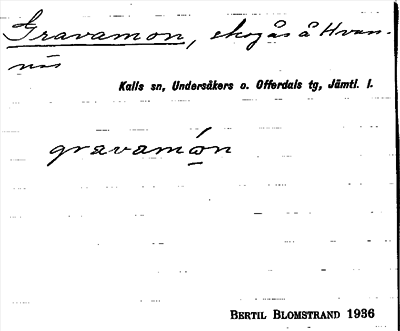 Gravamon, skogås å Hvan-
näs
Kalls sn, Undersåkers o. Offerdals tg, Jämtl. l.
gravamón
BERTIL BLOMSTRAND 1936